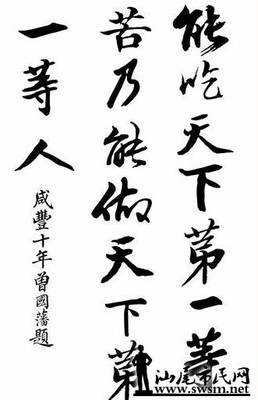 能吃天下第一等
苦乃能做天下第
一等人
咸豐十年曾國藩題
汕尾市民网
www.swsm.net